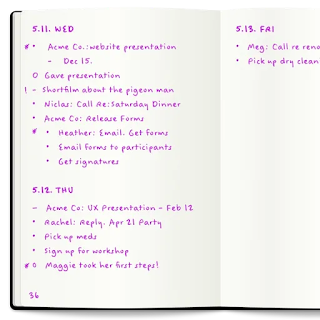 5.11. WED
* • Acme Co.: website presentation
– Dec 15.
O Gave presentation
! – Shortfilm about the pigeon man
• Niclas: Call Re: Saturday Dinner
• Acme Co: Release Forms
* • Heather: Email. Get forms
• Email forms to participants
• Get signatures
5.12. THU
– Acme Co: UX Presentation – Feb 12
• Rachel: Reply. Apr 21 Party
• Pick up meds
• Sign up for workshop
* O Maggie took her first steps!
36
5.13. FRI
• Meg: Call re reno
• Pick up dry clean